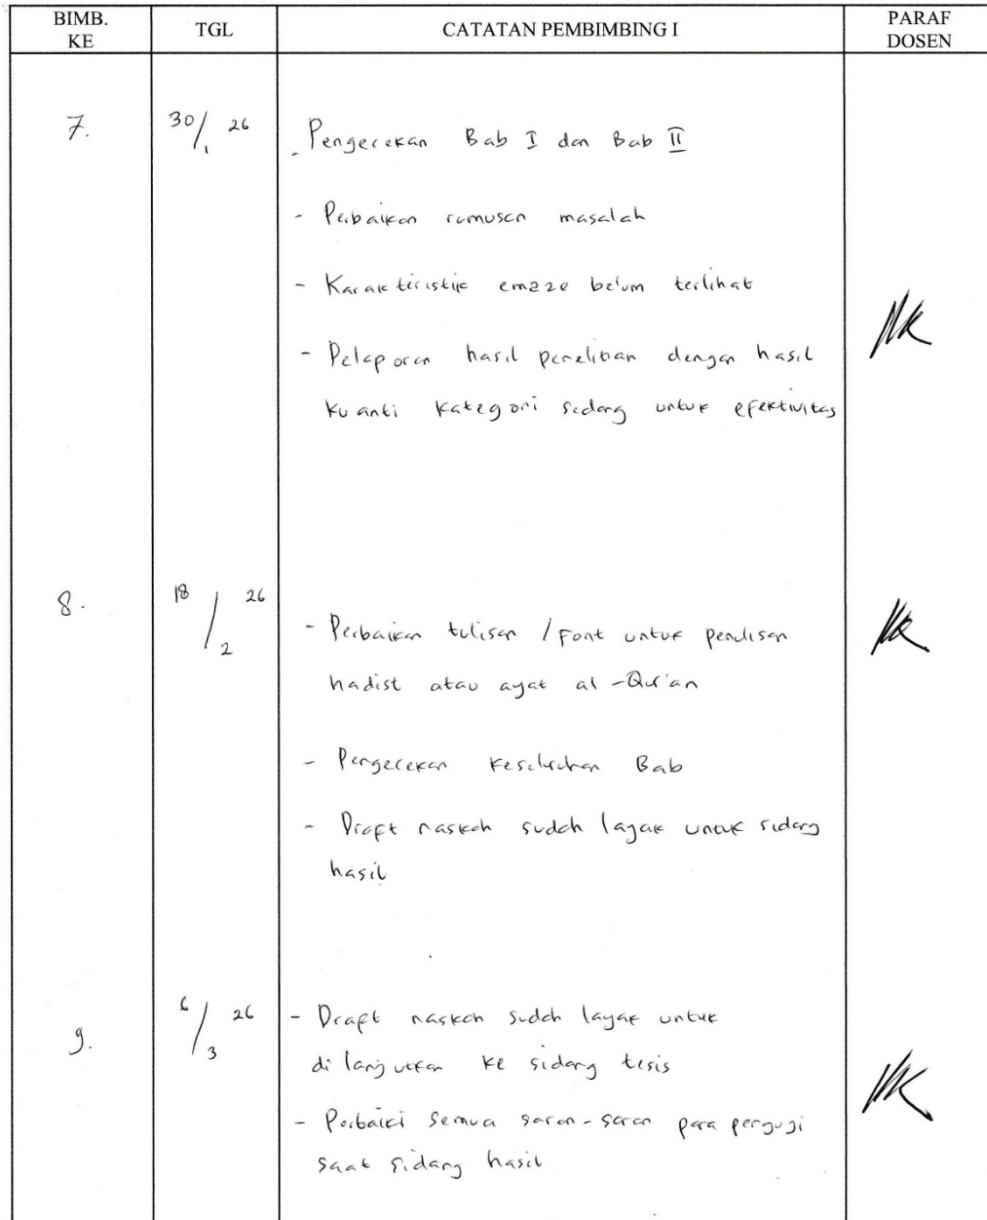 BIMB. KE TGL CATATAN PEMBIMBING I PARAF DOSEN
7. 30/1 26 - Pengecekan Bab I dan Bab II
- Perbaikan rumusan masalah
- Karakteristik emaze belum terlihat
- Pelaporan hasil penelitian dengan hasil
kuanti kategori sedang untuk efektivitas
8. 18/2 26 - Perbaikan tulisan / Font untuk penulisan
hadist atau ayat al-Qur'an
- Pengecekan Keseluruhan Bab
- Draft naskah sudah layak untuk sidang
hasil
9. 6/3 26 - Draft naskah sudah layak untuk
dilanjutkan ke sidang tesis
- Perbaiki semua saran-saran para penguji
saat sidang hasil